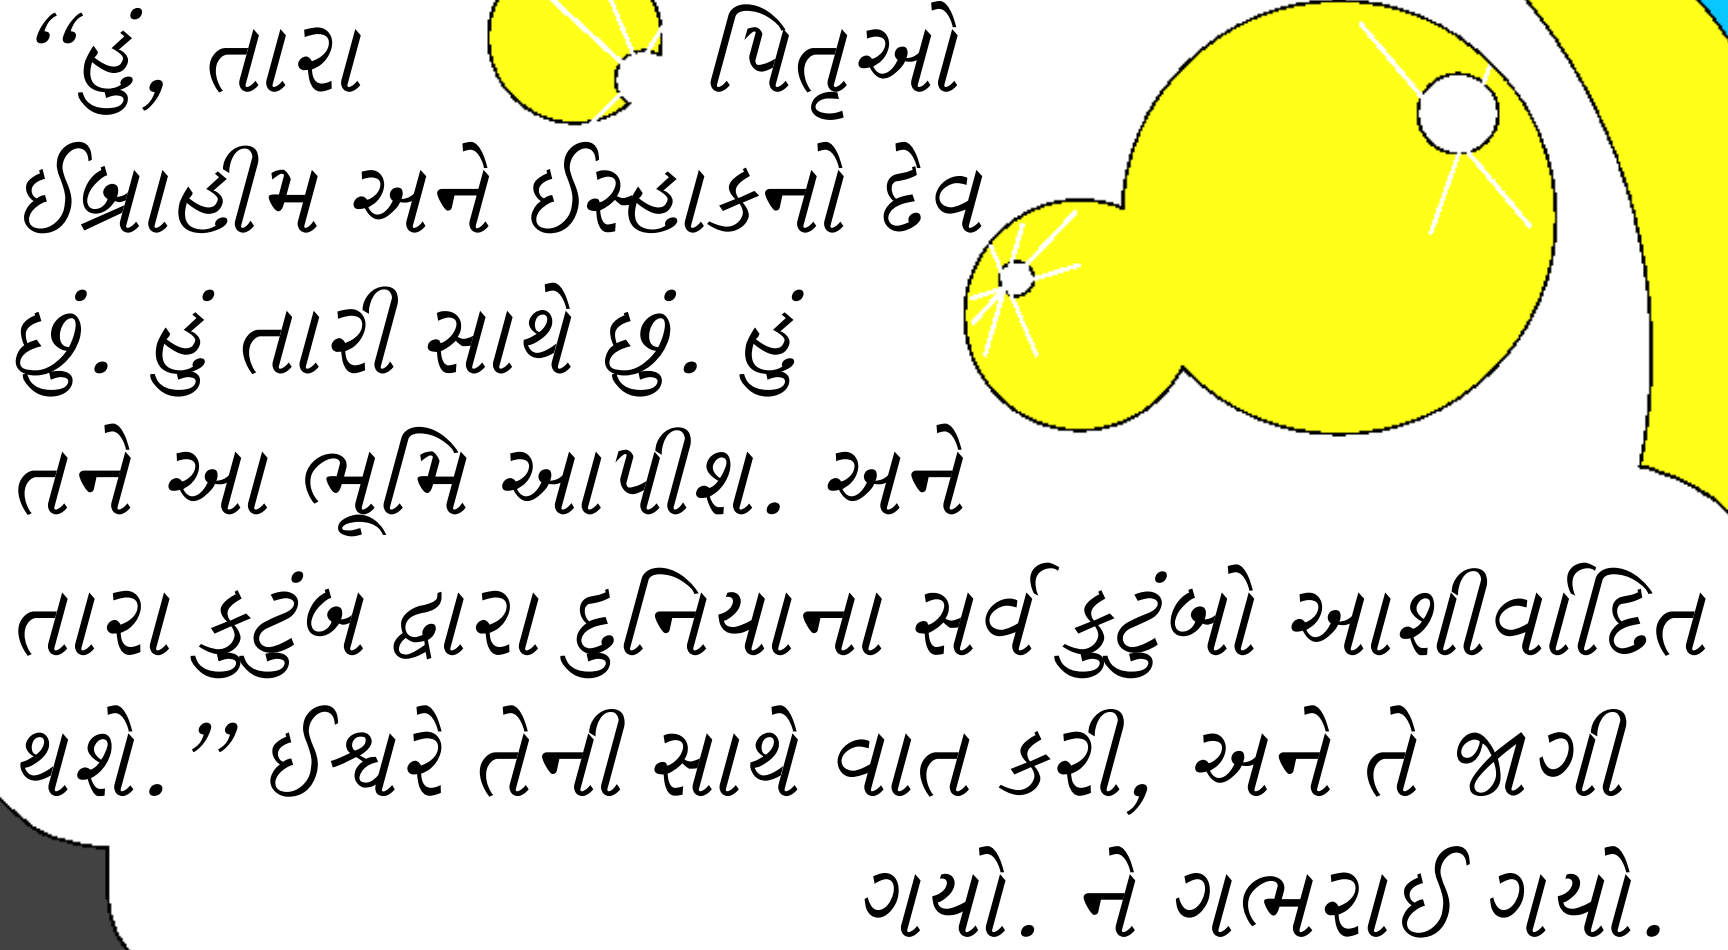 “હું, તારા પિતૃઓ
ઈબ્રાહીમ અને ઈસ્હાકનો દેવ
છું. હું તારી સાથે છું. હું
તને આ ભૂમિ આપીશ. અને
તારા કુટુંબ દ્વારા દુનિયાના સર્વ કુટુંબો આશીર્વાદિત
થશે.” ઈશ્વરે તેની સાથે વાત કરી, અને તે જાગી
ગયો. ને ગભરાઈ ગયો.